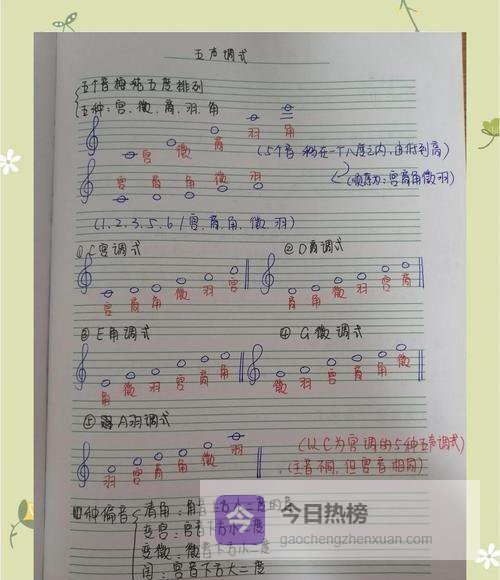 五声调式
五个音按纯五度排列
五种:宫、徵、商、羽、角
宫 徵 商 羽 角
(5个音 移在一个八度之内,由低到高)
宫 商 角 徵 羽
(顺序为:宫商角徵羽)
(1、2、3、5、6 / 宫、商、角、徵、羽)
①C宫调式 ②D商调式
宫 商 角 徵 羽 宫 商 角 徵 羽 宫 商
③E角调式 ④G徵调式
角 徵 羽 宫 商 角 徵 羽 宫 商 角 徵
⑤A羽调式
羽 宫 商 角 徵 羽
(以C为宫调的5种五声调式)
(主音不同,但宫音相同)
四种偏音
清角:角音上方小二度的音
变宫:宫音下方小二度
变徵:徵音下方小二度
闰:宫音下方大二度
今
今日热榜
gaochengzhenxuan.com